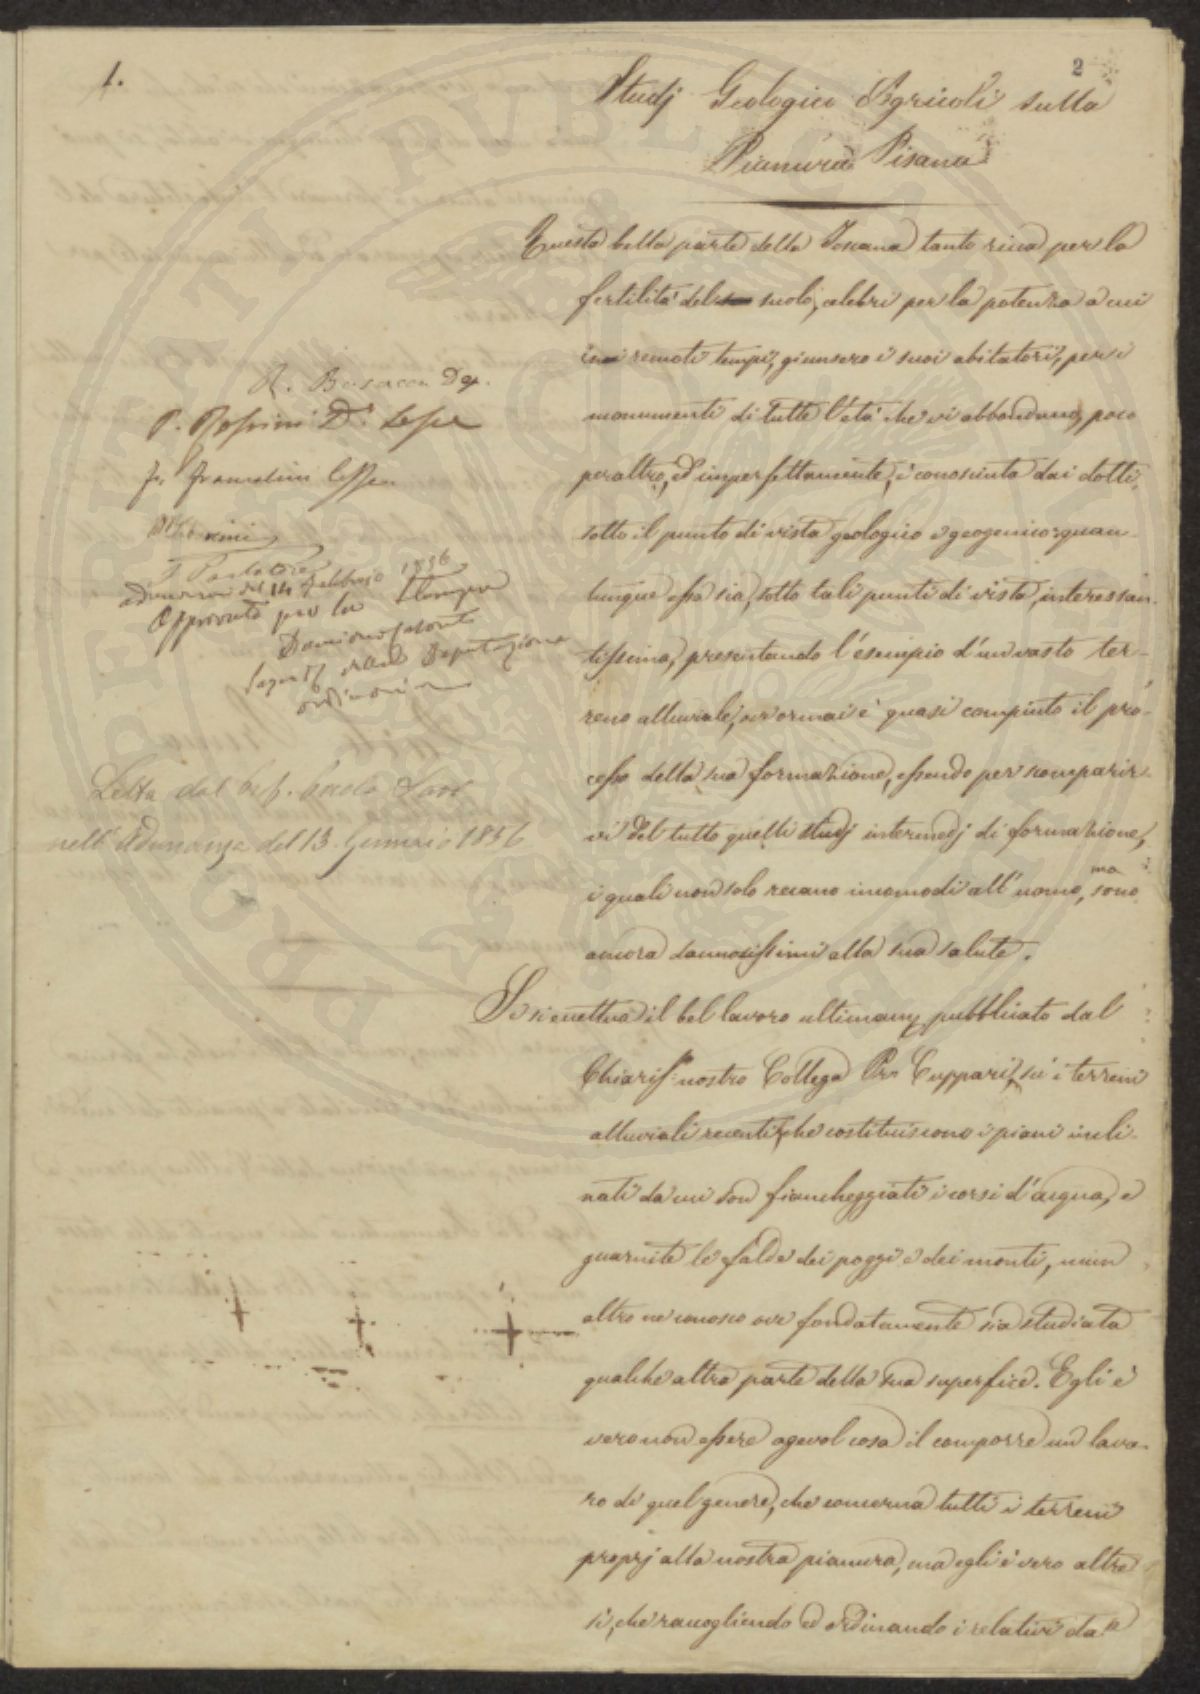 1.
2
Studj Geologico Agricoli sulla
Pianura Pisana
Questa bella parte della Toscana tanto ricca per la
fertilità del suolo, celebri per la potenza a cui
in remoti tempi, giunsero i suoi abitatori, per i
monumenti di tutte l'età che vi abbondano, poco
peraltro, ed imperfettamente, è conosciuta dai dotti,
sotto il punto di vista geologico e geogenico: quan-
tunque essa sia, sotto tali punti di vista, interessan-
tissima, presentando l'esempio d'un vasto ter-
reno alluviale, ove ormai è quasi compiuto il pro-
cesso della sua formazione, essendo per scomparir-
vi del tutto quelli studj intermedj di formazione,
i quali non solo recano incomodi all'uomo, ma sono
ancora dannosissimi alla sua salute.
Se si eccettua il bel lavoro ultimamte pubblicato dal
Chiariss. nostro Collega Pr. Cuppari, su i terreni
alluviali recenti, che costituiscono i piani incli-
nati da cui son fiancheggiati i corsi d'acqua, e
guarnite le falde dei poggi e dei monti, niun
altro ne conosco ove fondatamente sia studiata
qualche altra parte della sua superfice. Egli è
vero non essere agevol cosa il comporre un lavo-
ro di quel genere, che concerna tutti i terreni
proprj alla nostra pianura, ma egli è vero altre
sì, che raccogliendo ed ordinando i relativi da
P. Rossini
adunanza del 14 Febbraio 1856
Approvato per la Stampa
della Deputazione
Letta dal Prof. Paolo Savi
nell'Adunanza del 13. Gennaio 1856